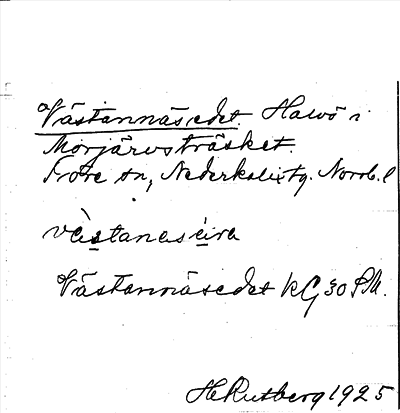 Västannäsedet. Halvö i
Morjärvsträsket.
Töre sn, Nederkalix tg. Norrb. l
västanæs
Västannäsedet kG 30 S.M.
H Rutberg 1925